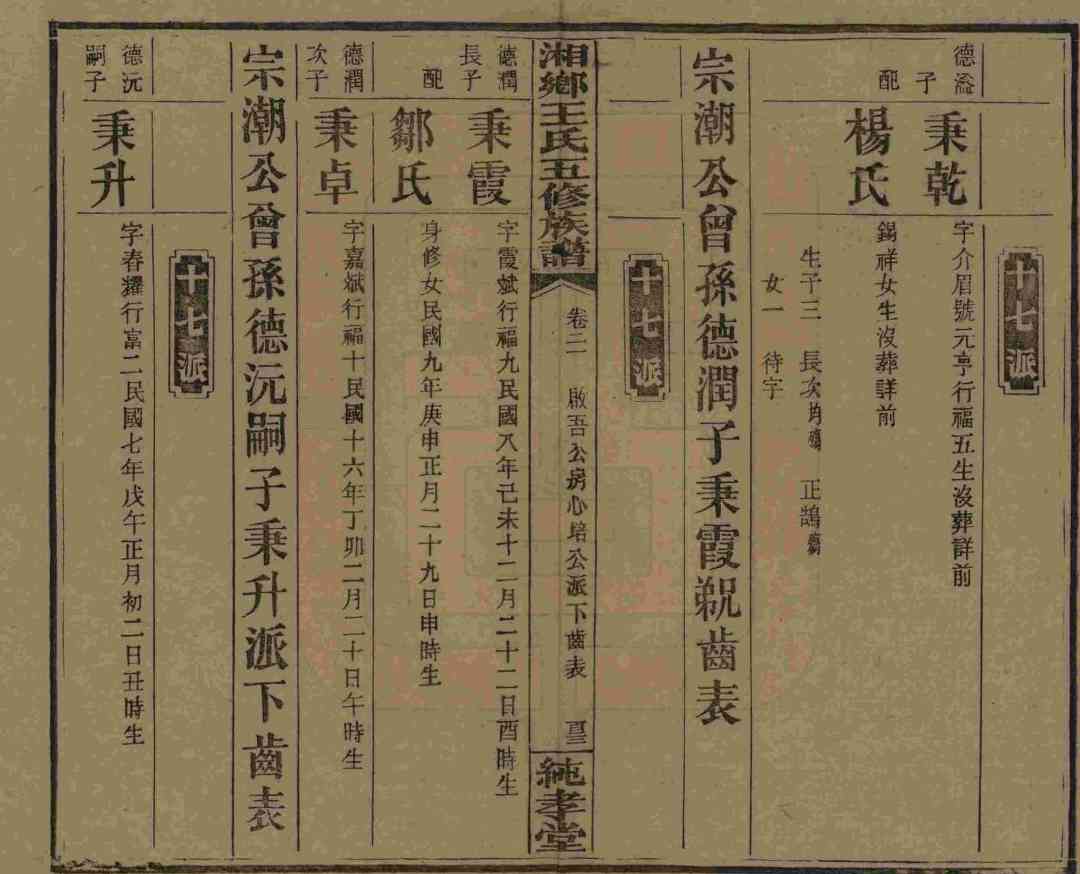 十七派
德溢子 秉乾 字介眉號元亨行福五生沒葬詳前
配 楊氏 錫祥女生沒葬詳前
生子三 長次 正鵠
女一 待字
宗潮公曾孫德潤子秉霞 齒表
十七派
湘鄉王氏五修族譜 卷二 啟吾公房心培公派下齒表 純孝堂
德潤長子 秉霞 字霞斌行福九民國八年己未十二月二十二日酉時生
配 鄒氏 身修女民國九年庚申正月二十九日申時生
德潤次子 秉卓 字嘉斌行福十民國十六年丁卯二月二十日午時生
宗潮公曾孫德沅嗣子秉升派下齒表
十七派
德沅嗣子 秉升 字春耀行富二民國七年戊午正月初二日丑時生